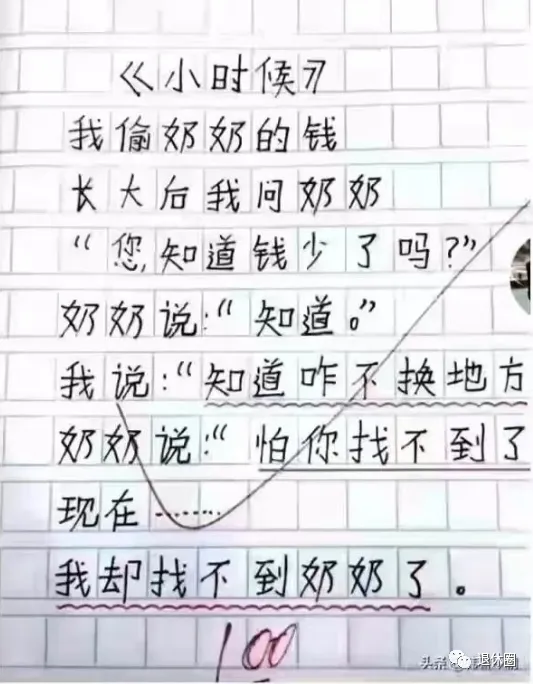 《小时候》
我偷奶奶的钱
长大后我问奶奶
“您知道钱少了吗?”
奶奶说:“知道。”
我说:“知道咋不换地方
奶奶说:“怕你找不到了
现在………
我却找不到奶奶了。
100
退休圈
头条